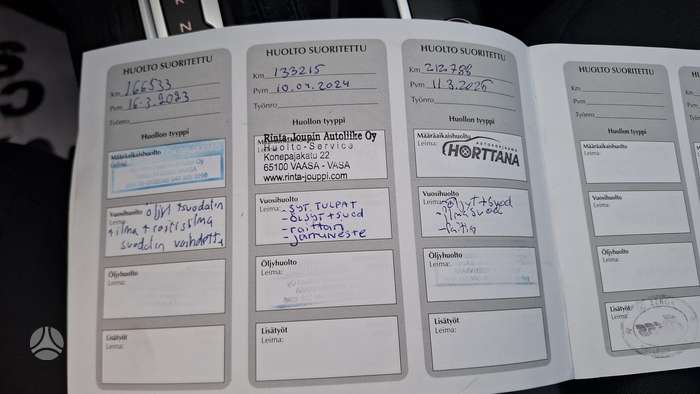 N
HUOLTO SUORITETTU
Km 166533
Pvm 16.3.2023
Työnro
Huollon tyyppi
Määräaikaishuolto
Leima:
Oy
Vuosihuolto
Leima: öljyt + suodatin
ilma + raitisilma
suodatin vaihdettu
Öljyhuolto
Leima:
Lisätyöt
Leima:
HUOLTO SUORITETTU
Km 133215
Pvm 10.01.2024
Työnro
Huollon tyyppi
Rinta-Joupin Autoliike Oy
Huolto-Service
Konepajakatu 22
65100 VAASA - VASA
www.rinta-jouppi.com
Vuosihuolto
Leima: -SYT. TULPAT
-ÖLJYT+SUOD
-raittari
-jarruneste
Öljyhuolto
Leima:
Lisätyöt
Leima:
HUOLTO SUORITETTU
Km 212788
Pvm 11.3.2025
Työnro
Huollon tyyppi
Määräaikaishuolto
Leima:
HORTTANA
Vuosihuolto
Leima: -öljyt+suod
-ilmasuod
Öljyhuolto
Leima:
Lisätyöt
Leima:
HUOLTO SUORITETTU
Km
Pvm
Työnro
Huollon tyyppi
Määräaikaishuolto
Leima:
Vuosihuolto
Leima:
Öljyhuolto
Leima:
Lisätyöt
Leima: